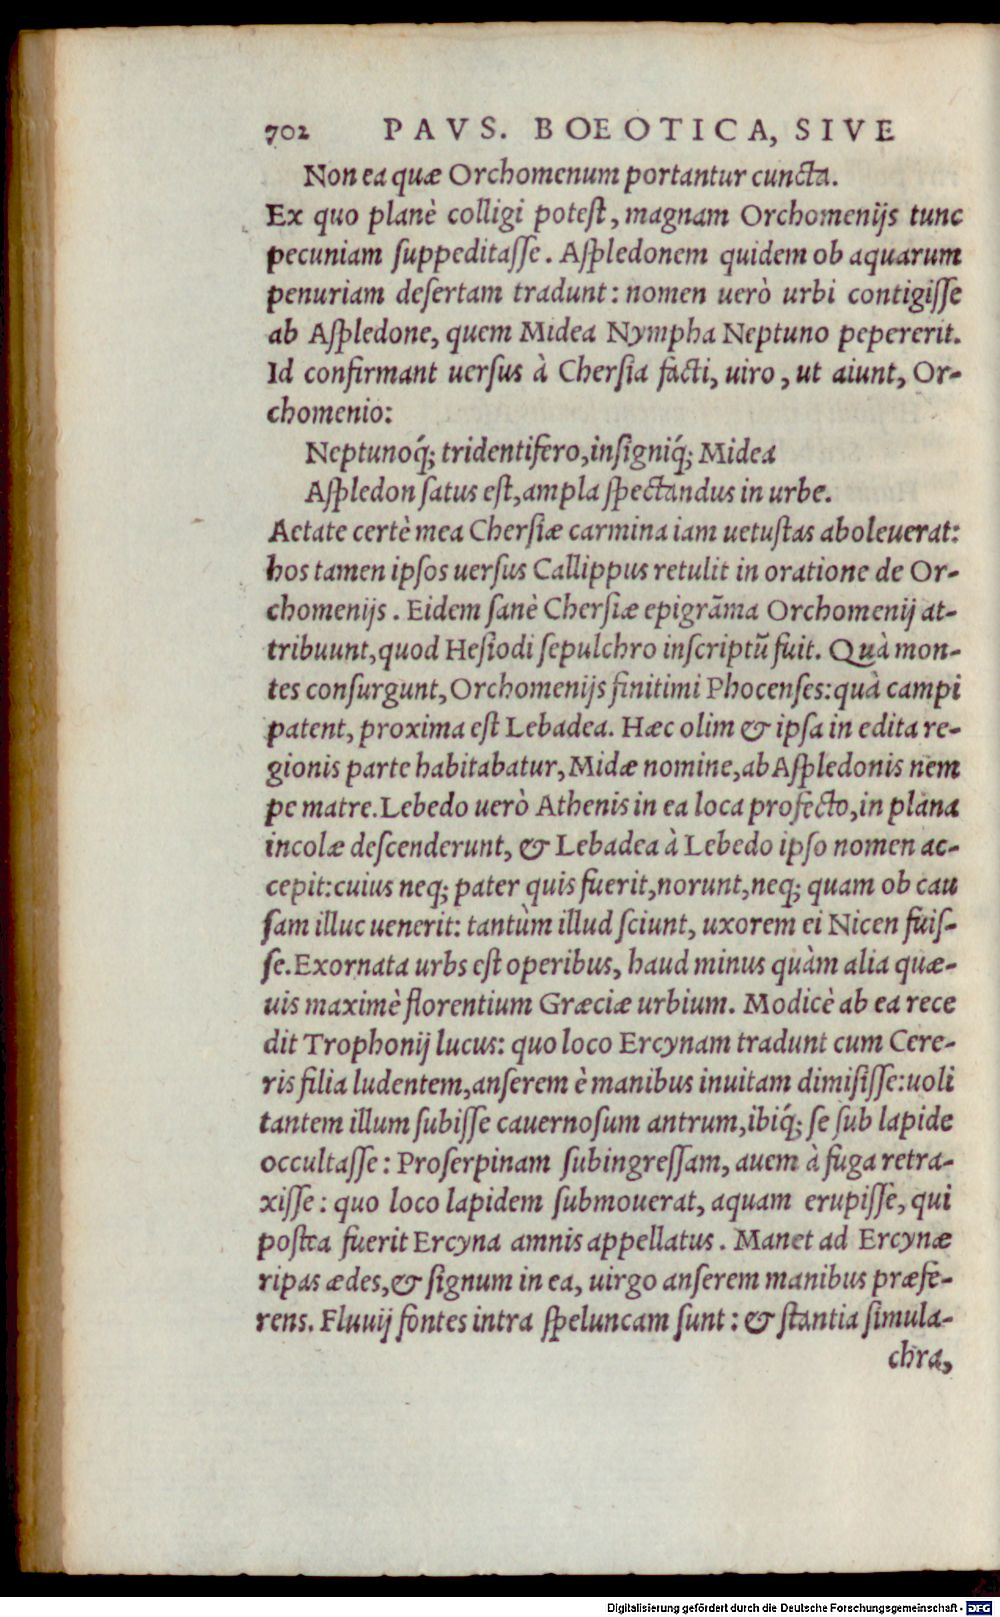 702 PAVS. BOEOTICA, SIVE
Non ea quæ Orchomenum portantur cuncta.
Ex quo planè colligi potest, magnam Orchomenijs tunc
pecuniam suppeditasse. Aspledonem quidem ob aquarum
penuriam desertam tradunt: nomen uerò urbi contigisse
ab Aspledone, quem Midea Nympha Neptuno pepererit.
Id confirmant uersus à Chersia facti, uiro, ut aiunt, Or-
chomenio:
Neptunoq́; tridentifero, insigniq́; Midea
Aspledon satus est, ampla spectandus in urbe.
Aetate certè mea Chersiæ carmina iam uetustas aboleuerat:
hos tamen ipsos uersus Callippus retulit in oratione de Or-
chomenijs. Eidem sanè Chersiæ epigrãma Orchomenij at-
tribuunt, quod Hesiodi sepulchro inscriptũ fuit. Quà mon-
tes consurgunt, Orchomenijs finitimi Phocenses: quà campi
patent, proxima est Lebadea. Hæc olim & ipsa in edita re-
gionis parte habitabatur, Midæ nomine, ab Aspledonis nem
pe matre. Lebedo uerò Athenis in ea loca profecto, in plana
incolæ descenderunt, & Lebadea à Lebedo ipso nomen ac-
cepit: cuius neq; pater quis fuerit, norunt, neq; quam ob cau
sam illuc uenerit: tantùm illud sciunt, uxorem ei Nicen fuis-
se. Exornata urbs est operibus, haud minus quàm alia quæ-
uis maximè florentium Græciæ urbium. Modicè ab ea rece
dit Trophonij lucus: quo loco Ercynam tradunt cum Cere-
ris filia ludentem, anserem è manibus inuitam dimisisse: uoli
tantem illum subisse cauernosum antrum, ibiq́; se sub lapide
occultasse: Proserpinam subingressam, auem à fuga retra-
xisse: quo loco lapidem submouerat, aquam erupisse, qui
postea fuerit Ercyna amnis appellatus. Manet ad Ercynæ
ripas ædes, & signum in ea, uirgo anserem manibus præfe-
rens. Fluuij fontes intra speluncam sunt: & stantia simula-
chra,
Digitalisierung gefördert durch die Deutsche Forschungsgemeinschaft - DFG